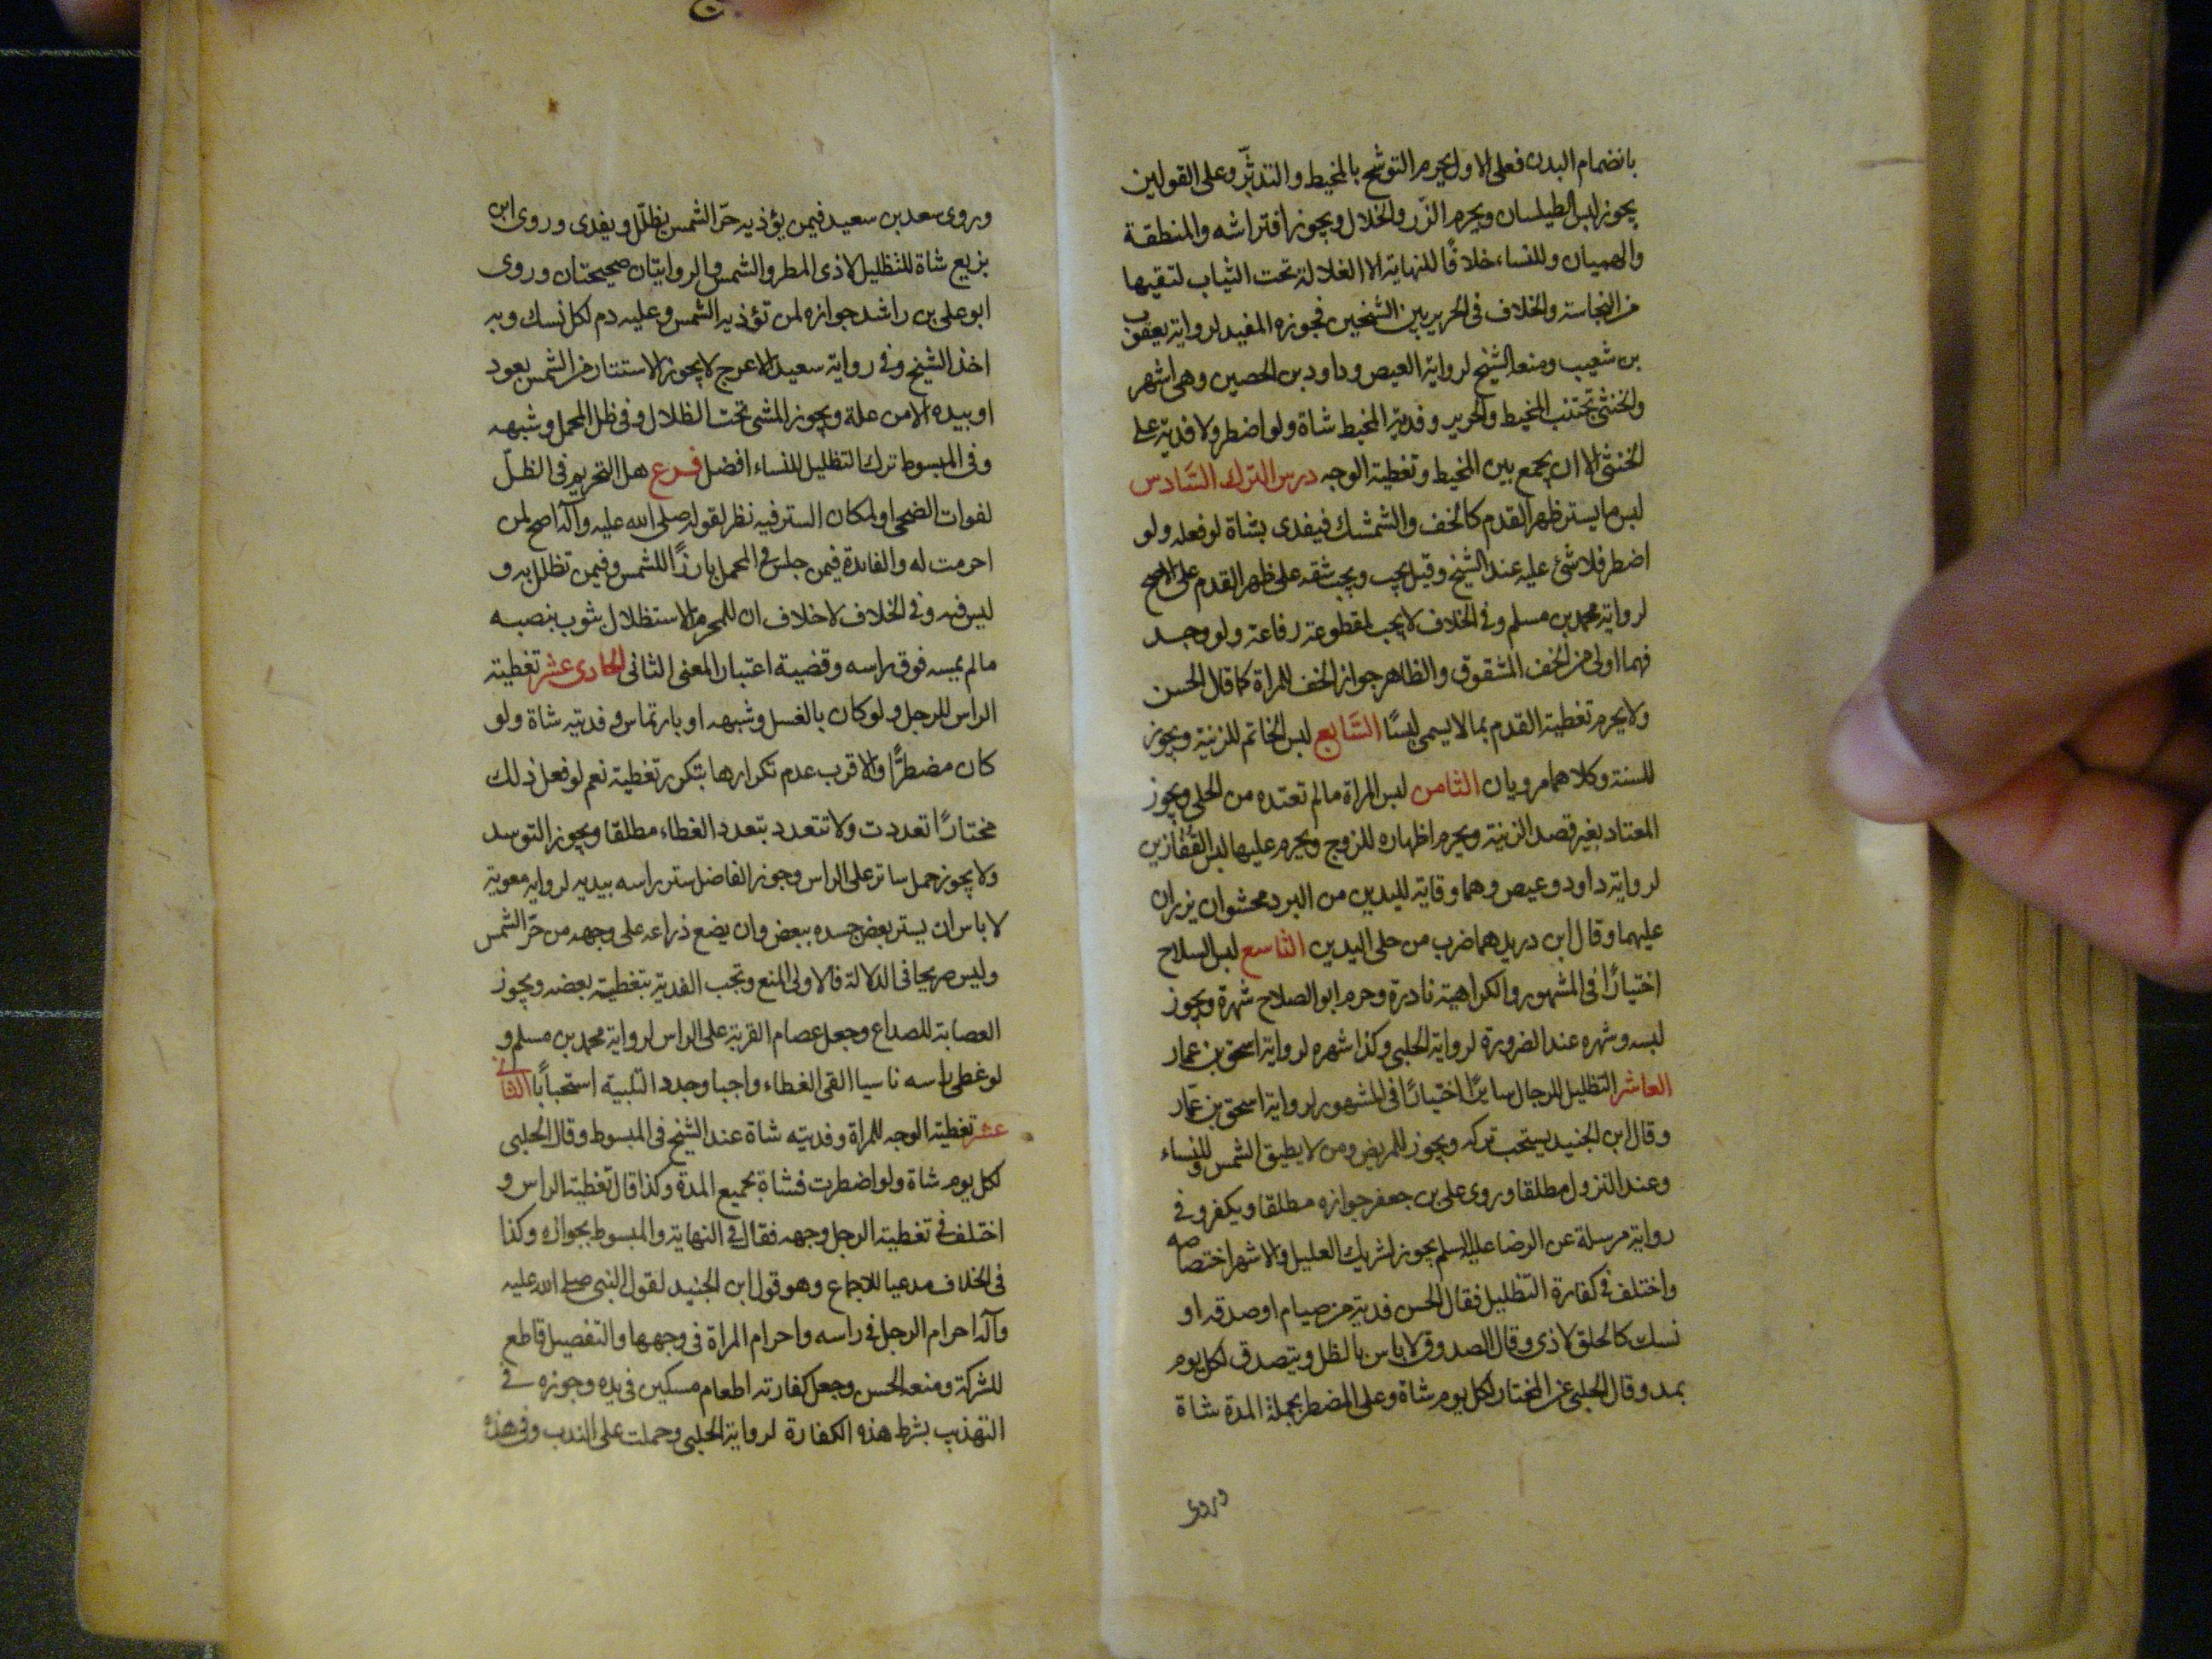 بانضمام البدن فعلى الاول يحرم التوشح بالمخيط والتدثّر وعلى القولين
يجوز لبس الطيلسان ويحرم الزّر والخلال ويجوز افتراشه والمنطقة
والهميان وللنساء خلافًا للنهاية الا الغلالة تحت الثياب لتقيها
من النجاسة والخلاف فى الحرير بين الشيخين فجوزه المفيد لرواية يعقوب
بن شعيب ومنعه الشيخ لرواية العيص وداود بن الحصين وهى اشهر
والخنثى تجتنب المخيط والحرير وفدية المخيط شاة ولو اضطر ولا فدية على
الخنثى الا ان يجمع بين المخيط وتغطية الوجه درس الترك السّادس
لبس ما يستر ظهر القدم كالخف والشمشك فيفدى بشاة لو فعله ولو
اضطر فلا شئ عليه عند الشيخ وقيل يجب ويجب شقه على ظهر القدم على الاصح
لرواية محمد بن مسلم وفى الخلاف لا يجب لمقطوعة رفاعة ولو وجد
فهما اولى من الخف المشقوق والظاهر جواز الخف للمراة كما قال الحسن
ولا يحرم تغطية القدم بما لا يسمى لبسًا السّابع لبس الخاتم للزينة ويجوز
للسنة وكلاهما مرويان الثامن لبس المراة ما لم تعتده من الحلى ويجوز
المعتاد بغير قصد الزينة ويحرم اظهاره للزوج ويحرم عليها لبس القفازين
لرواية داود وعيص وهما وقاية لليدين من البرد محشوان يزران
عليهما وقال ابن دريد هما ضرب من حلى اليدين التاسع لبس السلاح
اختيارًا فى المشهور والكراهية نادرة وحرم ابو الصلاح شهرة ويجوز
لبسه وشهره عند الضرورة لرواية الحلبى وكذا شهره لرواية اسحق بن عمار
العاشر التظليل للرجال سايرًا اختيارًا فى المشهور لرواية اسحق بن عمّار
وقال ابن الجنيد يستحب تركه ويجوز للمريض ومن لا يطيق الشمس وللنساء
وعند النزول مطلقا وروى على بن جعفر جوازه مطلقا ويكفر وفى
رواية مرسلة عن الرضا عليه السلم يجوز لشريك العليل والاشهر اختصاصه
واختلف فى كفارة التظليل فقال الحسن فدية من صيام او صدقه او
نسك كالحلق لاذى وقال الصدوق لا باس بالظل ويتصدق لكل يوم
بمد وقال الحلبى عن المختار لكل يوم شاة وعلى المضطر بجملة المدة شاة
وروى
وروى سعد بن سعيد فيمن يؤذيه حرّ الشمس يظلّل ويفدى وروى ابن
بزيع شاة للتظليل لاذى المطر والشمس والروايتان صحيحتان وروى
ابو على بن راشد جوازه لمن تؤذيه الشمس وعليه دم لكل نسك وبه
اخذ الشيخ وفى رواية سعيد الاعرج لا يجوز الاستتار من الشمس بعود
او بيده الا من علة ويجوز المشى تحت الظلال وفى ظل المحمل وشبهه
وفى المبسوط ترك التظليل للنساء افضل فرع هل التحريم فى الظلّ
لفوات الضحى او لمكان الستر فيه نظر لقوله صلى الله عليه وآله اضح لمن
احرمت له والفائدة فيمن جلس فى المحمل بارزًا للشمس وفيمن تظلل به و
ليس فيه وفى الخلاف لا خلاف ان للمحرم الاستظلال بثوب ينصبه
ما لم يمسه فوق راسه وقضية اعتبار المعنى الثانى الحادى عشر تغطية
الراس للرجل ولو كان بالغسل وشبهه او بارتماس وفديته شاة ولو
كان مضطرًا والاقرب عدم تكرارها بتكرر تغطية نعم لو فعل ذلك
مختارًا تعددت ولا تتعدد بتعدد الغطاء مطلقا ويجوز التوسد
ولا يجوز حمل ساتر على الراس وجوز الفاضل ستر راسه بيديه لرواية معوية
لا باس ان يستر بعض جسده ببعض وان يضع ذراعه على وجهه من حرّ الشمس
وليس صريحا فى الدلالة فالاولى المنع وتجب الفدية بتغطية بعضه ويجوز
العصابة للصداع وجعل عصام القربة على الراس لرواية محمد بن مسلم و
لو غطى راسه ناسيا القى الغطاء واجبا وجدد التلبية استحبابًا الثانى
عشر تغطية الوجه للمراة وفديته شاة عند الشيخ فى المبسوط وقال الحلبى
لكل يوم شاة ولو اضطرت فشاة بجميع المدة وكذا قال تغطية الراس و
اختلف فى تغطية الرجل وجهه فقال فى النهاية والمبسوط بجوازه وكذا
فى الخلاف مدعيا للاجماع وهو قول ابن الجنيد لقول النبى صلى الله عليه
وآله احرام الرجل فى راسه واحرام المراة فى وجهها والتفصيل قاطع
للشركة ومنعه الحسن وجعل كفارته اطعام مسكين فى يده وجوزه فى
التهذيب بشرط هذه الكفارة لرواية الحلبى وحملت على الندب وفى هذه